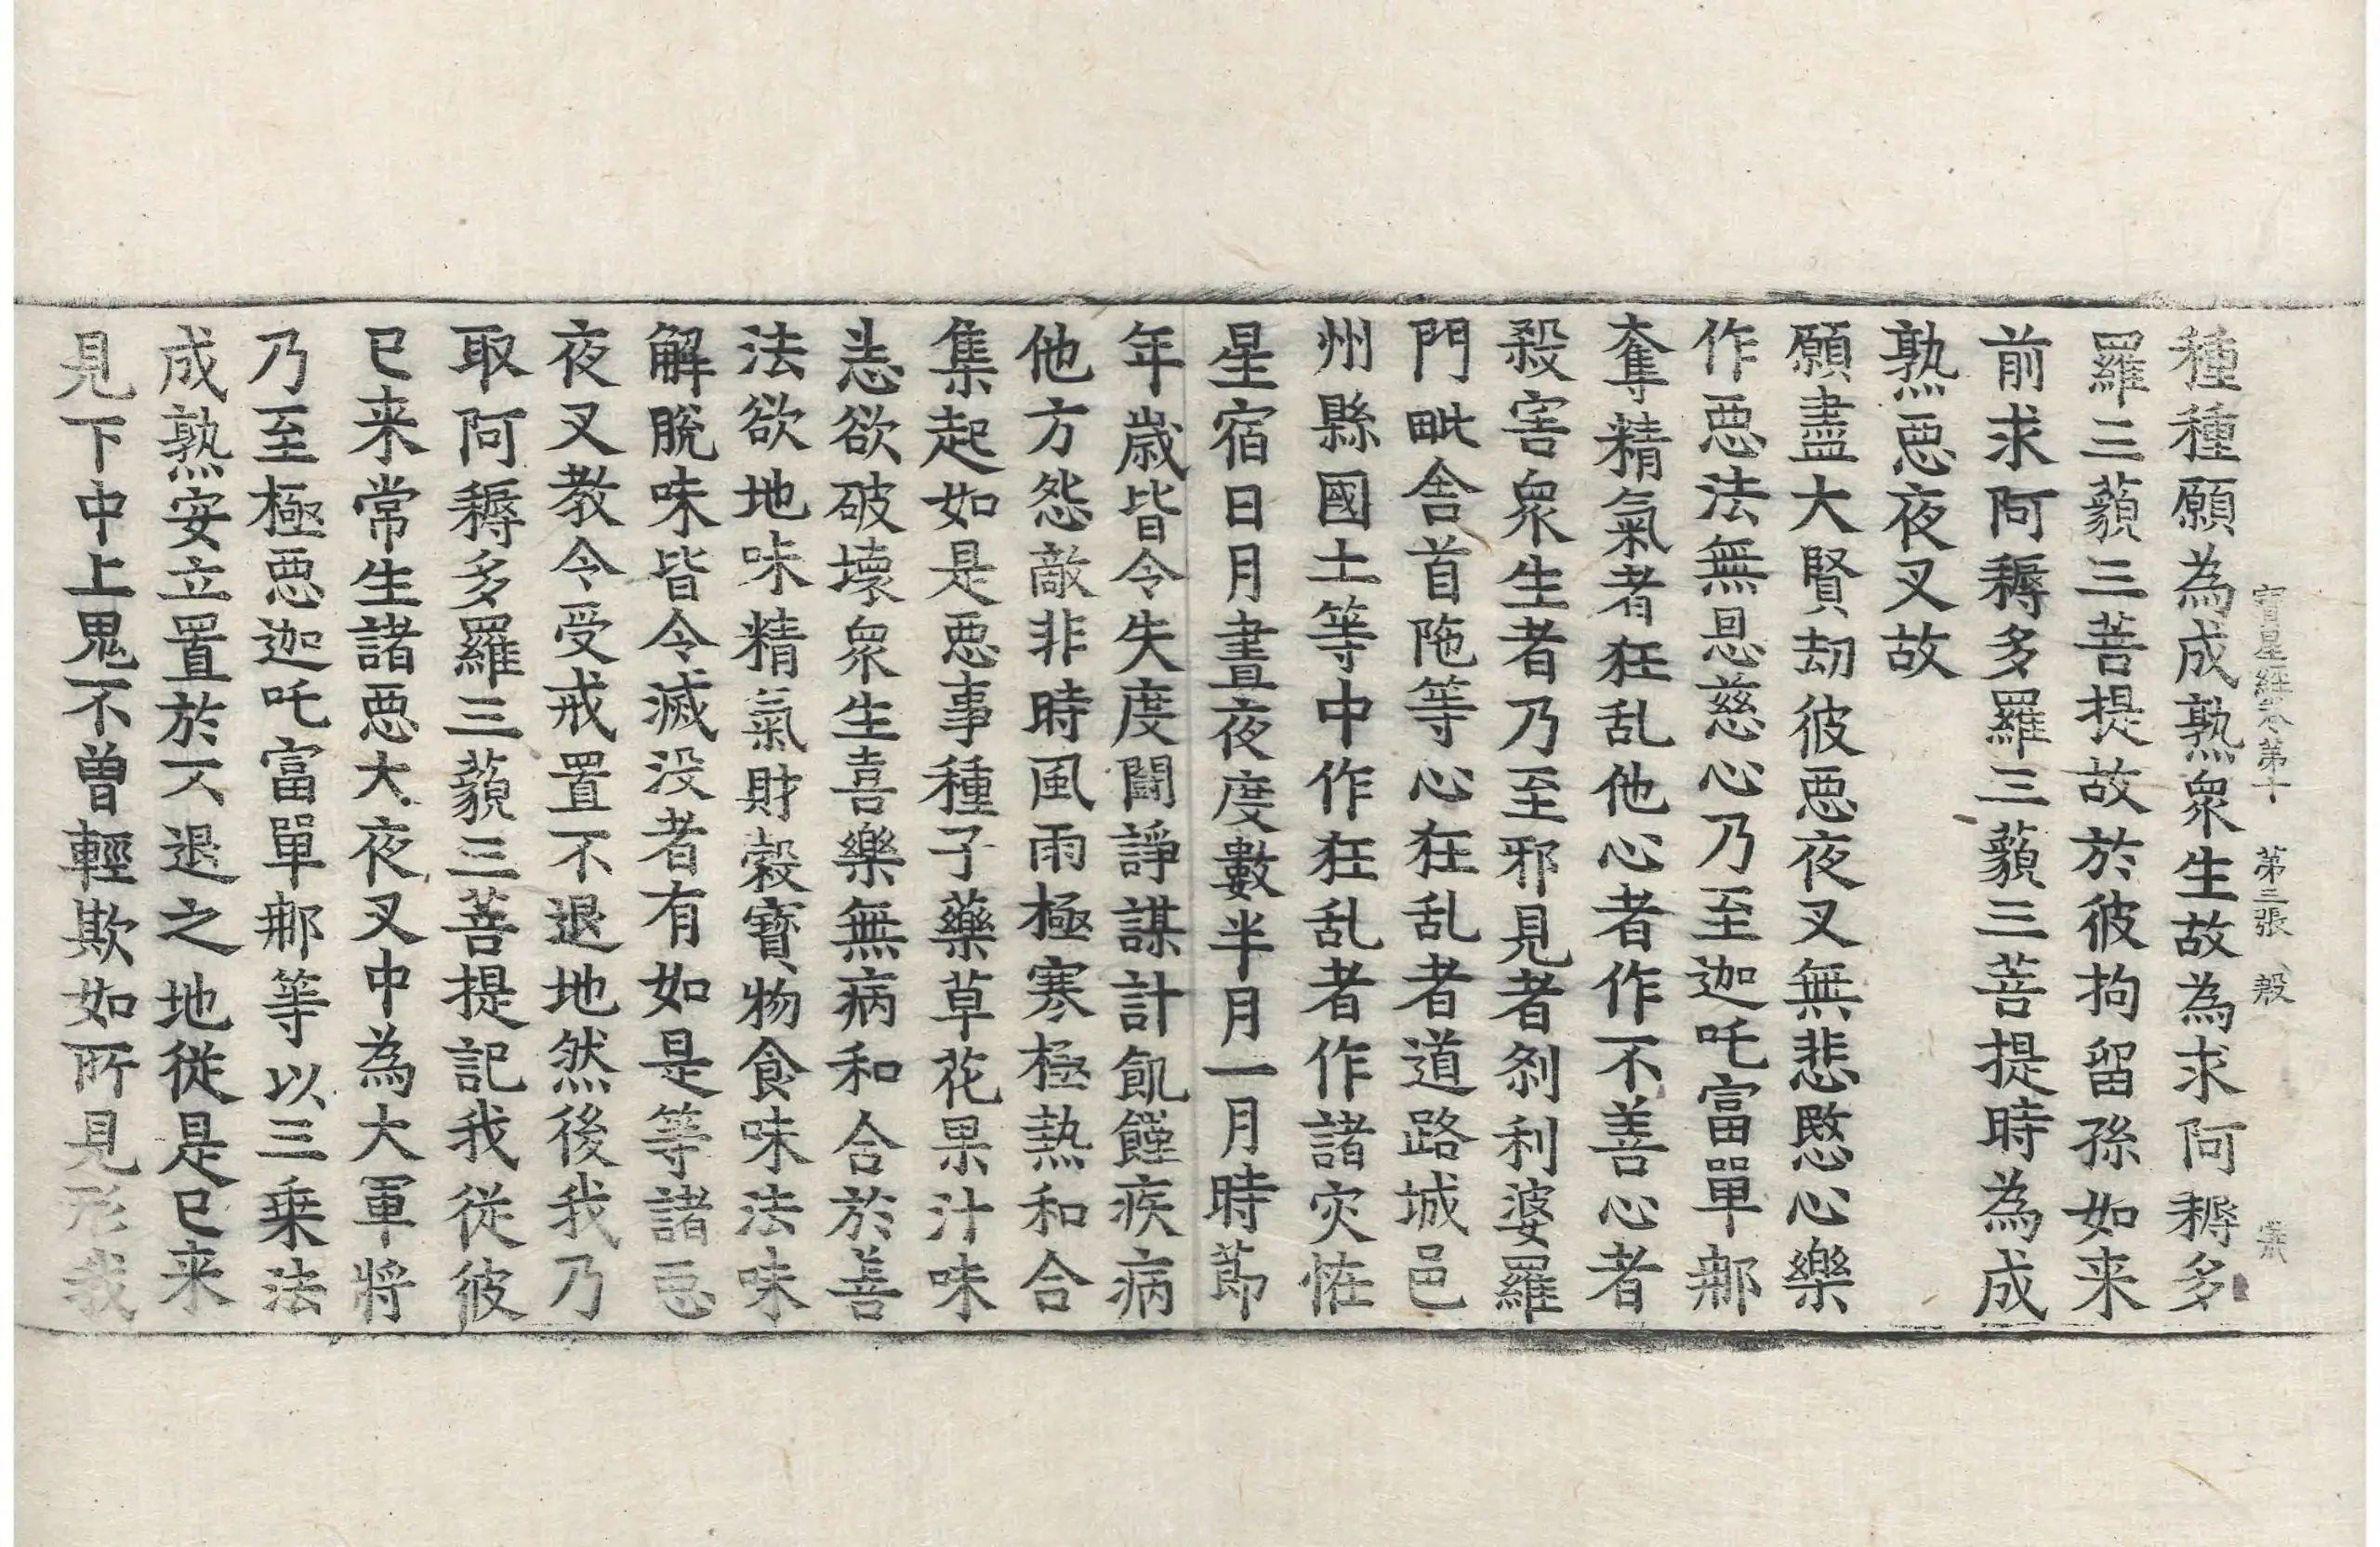 寳星經卷第十 第三張 殷
種種願為成熟衆生故為求阿耨多
羅三藐三菩提故於彼拘留孫如来
前求阿耨多羅三藐三菩提時為成
熟惡夜叉故
願盡大賢劫彼惡夜叉無悲愍心樂
作惡法無恩慈心乃至迦吒富單那
奪精氣者狂乱他心者作不善心者
殺害衆生者乃至邪見者剎利婆羅
門毗舍首陁等心狂乱者道路城邑
州縣國土等中作狂乱者作諸灾恠
星宿日月晝夜度數半月一月時節
年歳皆令失度鬪諍謀計飢饉疾病
他方怨敵非時風雨極寒極熱和合
集起如是惡事種子藥草花果汁味
恚欲破壊衆生喜樂無病和合於善
法欲地味精氣財穀寳物食味法味
解脫味皆令滅没者有如是等諸惡
夜叉教令受戒置不退地然後我乃
取阿耨多羅三藐三菩提記我從彼
已来常生諸惡大夜叉中為大軍將
乃至極惡迦吒富單那等以三乗法
成熟安立置於不退之地從是已来
見下中上鬼不曾輕欺如所見形我